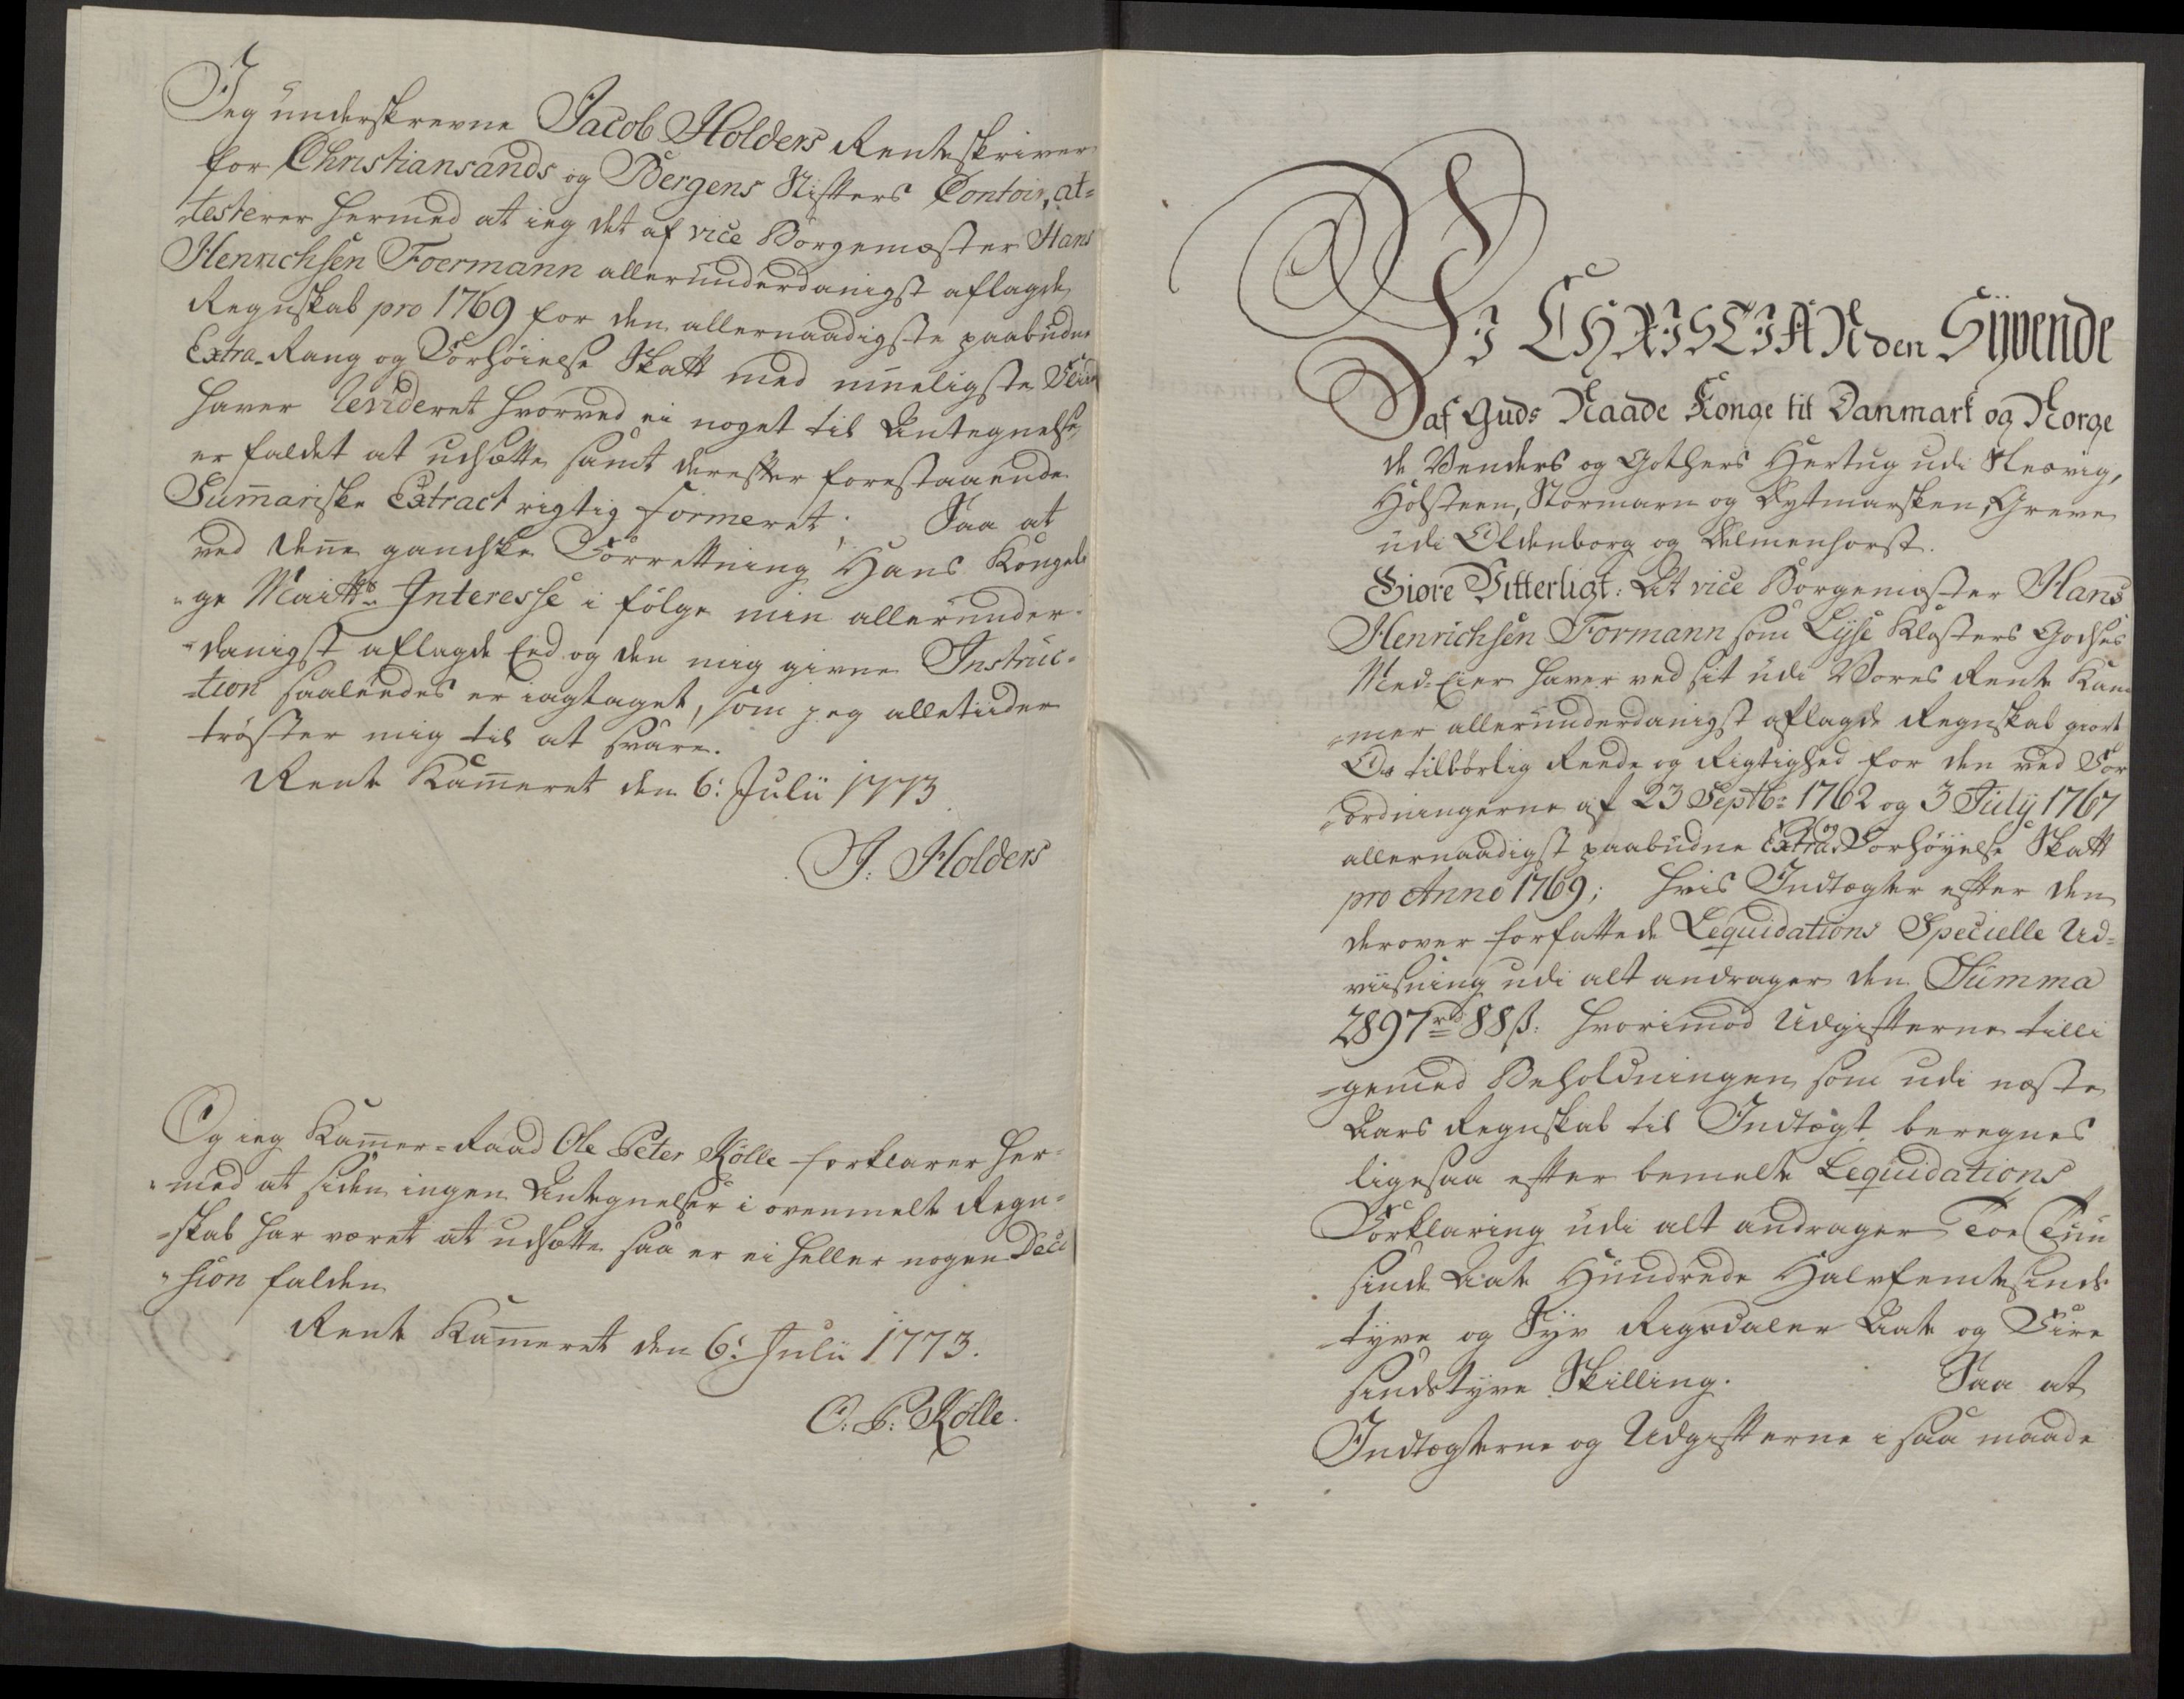 Jeg underskrevne Jacob Holders Renteskriver
for Christiansands og Bergens Stifters Contoir, at-
-testerer hermed at ieg det af vice Borgemæster Hans
Henrichsen Foermann allerunderdanigst aflagde
Regnskab pro 1769 for den allernaadigste paabudne
Extra- Rang og Forhøielse Skatt med mueligste Fliid
haver revideret hvorved ei noget til Antegnelse
er faldet at udsætte samt derefter forestaaende
Sum̅ariske Extract rigtig formeret; Saa at
ved den̅e gandske Forrettning Hans Kongeli
-ge Maitts Interesse i følge min allerunder-
-danigst aflagde Eed og den mig givne Instruc-
-tion saaledes er iagttaget, som jeg alletiider
trøster mig til at svare.
Rente Kam̅eret den 6: Julii 1773
J: Holders
Og ieg Kam̅er-Raad Ole Peter Kølle forklarer her-
-med at siden ingen Antegnelser i ovenmelte Regn-
-skab har været at udsætte saa er ei heller nogen Deci
-sion falden
Rente Kam̅eret den 6: Julii 1773.
O: P: Kølle.
VI CHRISTIAN den Syvende
af Guds Naade Konge til Danmark og Norge
de Venders og Gothers Hertug udi Slesvig,
Holsteen, Stormarn og Dytmarsken, Greve
udi Oldenborg og Delmenhorst.
Giøre Vitterligt: At vice Borgemester Hans
Henrichsen Formann som Lyse Klosters Godses
Med-Eier haver ved sit udi Vores Rente Kam
-mer allerunderdanigst aflagde Regnskab giort
Os tilbørlig Reede og Rigtighed for den ved For
-ordningerne af 23 Septbr: 1762 og 3 July 1767
allernaadigst paabudne Extra og Forhøyelse Skatt
pro Anno 1769; hvis Indtægter efter den
derover forfattede Lequidations Specielle Ud-
viisning udi alt andrager den Summa
2897 rd 88 ß: hvorimod Udgifterne tilli
-gemed Beholdningen som udi næste
Aars Regnskab til Indtægt beregnes
ligesaa efter bemelte Lequidations
Forklaring udi alt andrager Toe Tuu
sinde Aate Hundrede Halvfemtesinds
tyve og Syv Rigsdaler Aate og Fire
sindstyve Skilling. Saa at
Indtægterne og Udgifterne i saa maade